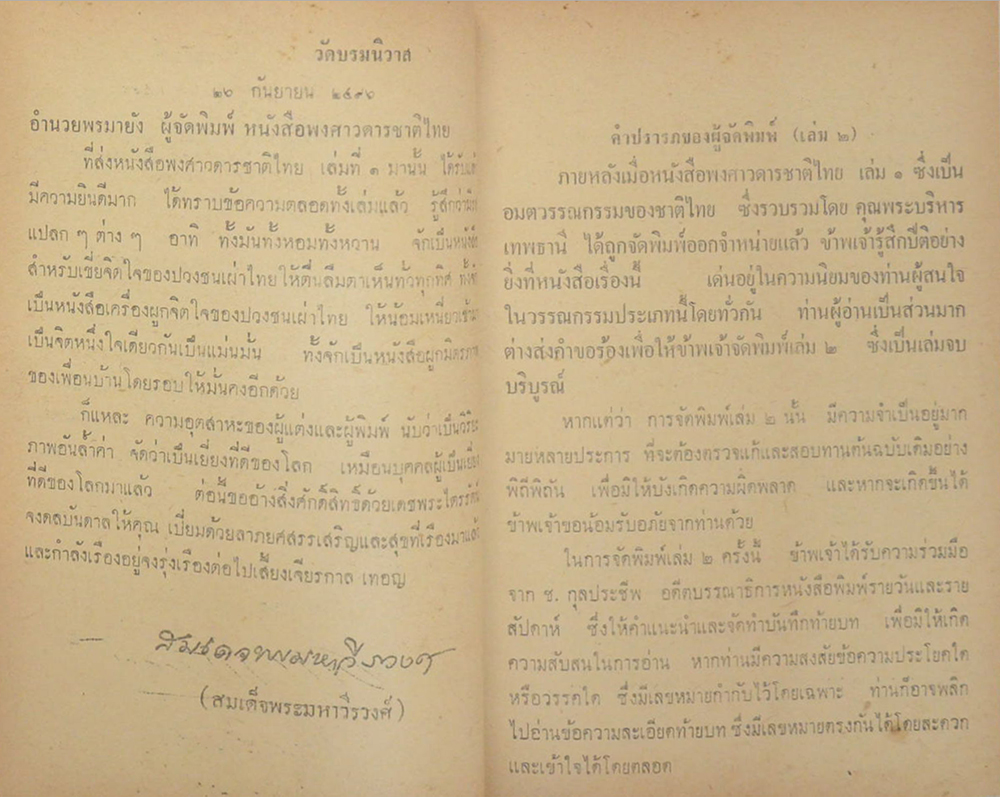 วัดบรมนิวาส
๒๖ กันยายน ๒๔๙๖
อำนวยพรมายัง ผู้จัดพิมพ์ หนังสือพงศาวดารชาติไทย
ที่ส่งหนังสือพงศาวดารชาติไทย เล่มที่ ๑ มานั้น
มีความยินดีมาก ได้ทราบข้อความตลอดทั้งเล่มแล้ว
แปลก ๆ ต่าง ๆ อาทิ ทั้งมันทั้งหอมทั้งหวาน
สำหรับเขี่ยจิตใจของปวงชนเผ่าไทยให้ตื่นลืมตาเห็นทั่วทุกทิศ
เป็นหนังสือเครื่องผูกจิตใจของปวงชนเผ่าไทย ให้น้อมเหนี่ยว
เป็นจิตหนึ่งใจเดียวกันเป็นแม่นมั่น ทั้งจักเป็นหนังสือผูก
ของเพื่อนบ้านโดยรอบให้มั่นคงอีกด้วย
ก็แหละ ความอุตสาหะของผู้แต่งและผู้พิมพ์ นับว่าเป็น
ภาพอันล้ำค่า จัดว่าเป็นเยี่ยงที่ดีของโลก เหมือนบุคคลผู้เป็น
ที่ดีของโลกมาแล้ว ต่อนี้ขออ้างสิ่งศักดิ์สิทธิ์ด้วยเดชพระไตรรัตน์
จงดลบันดาลให้คุณ เปี่ยมด้วยลาภยศสรรเสริญและสุขที่เรืองมาแล้ว
และกำลังเรืองอยู่จงรุ่งเรืองต่อไปเสี้ยงเจียรกาล เทอญ
สมเด็จพระมหาวีรวงศ์
(สมเด็จพระมหาวีรวงศ์)
คำปรารภของผู้จัดพิมพ์ (เล่ม ๒)
ภายหลังเมื่อหนังสือพงศาวดารชาติไทย เล่ม ๑ ซึ่งเป็น
อมตวรรณกรรมของชาติไทย ซึ่งรวบรวมโดย คุณพระบริหาร
เทพธานี ได้ถูกจัดพิมพ์ออกจำหน่ายแล้ว ข้าพเจ้ารู้สึกปีติอย่าง
ยิ่งที่หนังสือเรื่องนี้ เด่นอยู่ในความนิยมของท่านผู้สนใจ
ในวรรณกรรมประเภทนี้โดยทั่วกัน ท่านผู้อ่านเป็นส่วนมาก
ต่างส่งคำขอร้องเพื่อให้ข้าพเจ้าจัดพิมพ์เล่ม ๒ ซึ่งเป็นเล่มจบ
บริบูรณ์
หากแต่ว่า การจัดพิมพ์เล่ม ๒ นั้น มีความจำเป็นอยู่มาก
มายหลายประการ ที่จะต้องตรวจแก้และสอบทานต้นฉบับเดิมอย่าง
พิถีพิถัน เพื่อมิให้บังเกิดความผิดพลาด และหากจะเกิดขึ้นได้
ข้าพเจ้าขอน้อมรับอภัยจากท่านด้วย
ในการจัดพิมพ์เล่ม ๒ ครั้งนี้ ข้าพเจ้าได้รับความร่วมมือ
จาก ช. กุลประชีพ อดีตบรรณาธิการหนังสือพิมพ์รายวันและราย
สัปดาห์ ซึ่งให้คำแนะนำและจัดทำบันทึกท้ายบท เพื่อมิให้เกิด
ความสับสนในการอ่าน หากท่านมีความสงสัยข้อความประโยคใด
หรือวรรคใด ซึ่งมีเลขหมายกำกับไว้โดยเฉพาะ ท่านก็อาจพลิก
ไปอ่านข้อความละเอียดท้ายบท ซึ่งมีเลขหมายตรงกันได้โดยสะดวก
และเข้าใจได้โดยตลอด